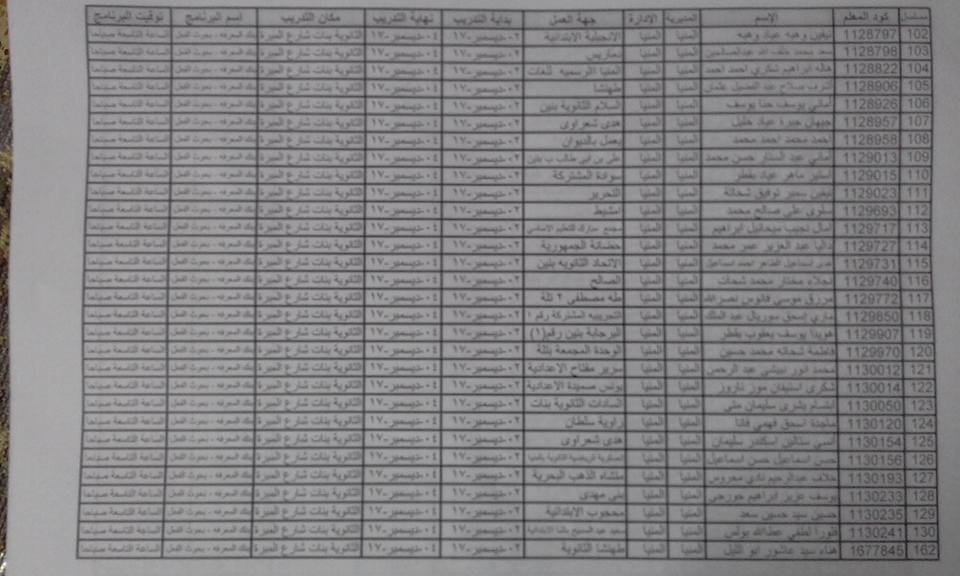 مسلسل كود المعلم الإسم المديرية الإدارة جهة العمل بداية التدريب نهاية التدريب مكان التدريب اسم البرنامج توقيت البرنامج
102 1128797 نيفين وهبه عياد وهبه المنيا المنيا الانجيلية الابتدائية ٠٢-ديسمبر-١٧ ٠٤-ديسمبر-١٧ الثانوية بنات شارع المبرة بنك المعرفه - بحوث الفعل الساعة التاسعة صباحا
103 1128798 سعد محمد خلف الله عبدالصالحين المنيا المنيا بماريس ٠٢-ديسمبر-١٧ ٠٤-ديسمبر-١٧ الثانوية بنات شارع المبرة بنك المعرفه - بحوث الفعل الساعة التاسعة صباحا
104 1128822 هاله ابراهيم شكري احمد احمد المنيا المنيا المنيا الرسميه للغات ٠٢-ديسمبر-١٧ ٠٤-ديسمبر-١٧ الثانوية بنات شارع المبرة بنك المعرفه - بحوث الفعل الساعة التاسعة صباحا
105 1128906 اشرف صلاح عبد الفضيل عثمان المنيا المنيا طهنشا ٠٢-ديسمبر-١٧ ٠٤-ديسمبر-١٧ الثانوية بنات شارع المبرة بنك المعرفه - بحوث الفعل الساعة التاسعة صباحا
106 1128926 أماني يوسف حنا يوسف المنيا المنيا السلام الثانوية بنين ٠٢-ديسمبر-١٧ ٠٤-ديسمبر-١٧ الثانوية بنات شارع المبرة بنك المعرفه - بحوث الفعل الساعة التاسعة صباحا
107 1128957 جيهان جبرة عياد خليل المنيا المنيا هدى شعراوى ٠٢-ديسمبر-١٧ ٠٤-ديسمبر-١٧ الثانوية بنات شارع المبرة بنك المعرفه - بحوث الفعل الساعة التاسعة صباحا
108 1128958 احمد محمد احمد محمد المنيا المنيا يعمل بالديوان ٠٢-ديسمبر-١٧ ٠٤-ديسمبر-١٧ الثانوية بنات شارع المبرة بنك المعرفه - بحوث الفعل الساعة التاسعة صباحا
109 1129013 عبد الستار حسن محمد المنيا المنيا على بن ابي طالب ب بنين ٠٢-ديسمبر-١٧ ٠٤-ديسمبر-١٧ الثانوية بنات شارع المبرة بنك المعرفه - بحوث الفعل الساعة التاسعة صباحا
110 1129015 استير ماهر عياد بقطر المنيا المنيا سوادة المشتركة ٠٢-ديسمبر-١٧ ٠٤-ديسمبر-١٧ الثانوية بنات شارع المبرة بنك المعرفه - بحوث الفعل الساعة التاسعة صباحا
111 1129023 نيفين سمير توفيق شحاتة المنيا المنيا التحرير ٠٢-ديسمبر-١٧ ٠٤-ديسمبر-١٧ الثانوية بنات شارع المبرة بنك المعرفه - بحوث الفعل الساعة التاسعة صباحا
112 1129693 سلوى على صالح محمد المنيا المنيا ٠٢-ديسمبر-١٧ ٠٤-ديسمبر-١٧ الثانوية بنات شارع المبرة بنك المعرفه - بحوث الفعل الساعة التاسعة صباحا
113 1129717 امال نجيب ميخائيل ابراهيم المنيا المنيا مجمع مبارك للتعليم الاساسي ٠٢-ديسمبر-١٧ ٠٤-ديسمبر-١٧ الثانوية بنات شارع المبرة بنك المعرفه - بحوث الفعل الساعة التاسعة صباحا
114 1129727 داليا عبد العزيز عمر محمد المنيا المنيا حضانة الجمهورية ٠٢-ديسمبر-١٧ ٠٤-ديسمبر-١٧ الثانوية بنات شارع المبرة بنك المعرفه - بحوث الفعل الساعة التاسعة صباحا
115 1129731 اسماعيل الطاهر احمد اسماعيل المنيا المنيا الاتحاد الثانويه بنين ٠٢-ديسمبر-١٧ ٠٤-ديسمبر-١٧ الثانوية بنات شارع المبرة بنك المعرفه - بحوث الفعل الساعة التاسعة صباحا
116 1129740 نجلاء مختار محمد شحات المنيا المنيا الصالح ٠٢-ديسمبر-١٧ ٠٤-ديسمبر-١٧ الثانوية بنات شارع المبرة بنك المعرفه - بحوث الفعل الساعة التاسعة صباحا
117 1129772 مرزق موسى فانوس نصرالله المنيا المنيا طه مصطفى ٢ تلة ٠٢-ديسمبر-١٧ ٠٤-ديسمبر-١٧ الثانوية بنات شارع المبرة بنك المعرفه - بحوث الفعل الساعة التاسعة صباحا
118 1129850 ماري إسحق سوريال عبد الملك المنيا المنيا التجريبيه المشتركة رقم ١ ٠٢-ديسمبر-١٧ ٠٤-ديسمبر-١٧ الثانوية بنات شارع المبرة بنك المعرفه - بحوث الفعل الساعة التاسعة صباحا
119 1129907 هويدا يوسف يعقوب بقطر المنيا المنيا البرجاية بنين رقم(١) ٠٢-ديسمبر-١٧ ٠٤-ديسمبر-١٧ الثانوية بنات شارع المبرة بنك المعرفه - بحوث الفعل الساعة التاسعة صباحا
120 1129970 فاطمة شحاته محمد حسين المنيا المنيا الوحدة المجمعة بتلة ٠٢-ديسمبر-١٧ ٠٤-ديسمبر-١٧ الثانوية بنات شارع المبرة بنك المعرفه - بحوث الفعل الساعة التاسعة صباحا
121 1130012 محمد انور عبد الرحمن المنيا المنيا سرير مفتاح الاعدادية ٠٢-ديسمبر-١٧ ٠٤-ديسمبر-١٧ الثانوية بنات شارع المبرة بنك المعرفه - بحوث الفعل الساعة التاسعة صباحا
122 1130014 شكرى استيفان ناروز المنيا المنيا يونس صميدة الإعدادية ٠٢-ديسمبر-١٧ ٠٤-ديسمبر-١٧ الثانوية بنات شارع المبرة بنك المعرفه - بحوث الفعل الساعة التاسعة صباحا
123 1130050 ابتسام بشرى سليمان متى المنيا المنيا السادات الثانوية بنات ٠٢-ديسمبر-١٧ ٠٤-ديسمبر-١٧ الثانوية بنات شارع المبرة بنك المعرفه - بحوث الفعل الساعة التاسعة صباحا
124 1130120 ماجدة اسحق فهمي المنيا المنيا زاوية سلطان ٠٢-ديسمبر-١٧ ٠٤-ديسمبر-١٧ الثانوية بنات شارع المبرة بنك المعرفه - بحوث الفعل الساعة التاسعة صباحا
125 1130154 ستالين اسكندر سليمان المنيا المنيا هدى شعراوى ٠٢-ديسمبر-١٧ ٠٤-ديسمبر-١٧ الثانوية بنات شارع المبرة بنك المعرفه - بحوث الفعل الساعة التاسعة صباحا
126 1130156 حسن اسماعيل حسن اسماعيل المنيا المنيا العسكرية الرياضية الثانوية بالمنيا ٠٢-ديسمبر-١٧ ٠٤-ديسمبر-١٧ الثانوية بنات شارع المبرة بنك المعرفه - بحوث الفعل الساعة التاسعة صباحا
127 1130193 خلاف عبدالرحيم نادي محروس المنيا المنيا منشاه الذهب البحرية ٠٢-ديسمبر-١٧ ٠٤-ديسمبر-١٧ الثانوية بنات شارع المبرة بنك المعرفه - بحوث الفعل الساعة التاسعة صباحا
128 1130233 يوسف عزيز ابراهيم جورجى المنيا المنيا بنى مهدى ٠٢-ديسمبر-١٧ ٠٤-ديسمبر-١٧ الثانوية بنات شارع المبرة بنك المعرفه - بحوث الفعل الساعة التاسعة صباحا
129 1130235 حسين سيد حسين سعد المنيا المنيا محجوب الابتدائية ٠٢-ديسمبر-١٧ ٠٤-ديسمبر-١٧ الثانوية بنات شارع المبرة بنك المعرفه - بحوث الفعل الساعة التاسعة صباحا
130 1130241 فلورا لطفي عطاالله بولس المنيا المنيا عبد المسيح باشا الابتدائية ٠٢-ديسمبر-١٧ ٠٤-ديسمبر-١٧ الثانوية بنات شارع المبرة بنك المعرفه - بحوث الفعل الساعة التاسعة صباحا
162 1677845 هناء سيد عاشور ابو الليل المنيا المنيا طهنشا الثانوية ٠٢-ديسمبر-١٧ ٠٤-ديسمبر-١٧ الثانوية بنات شارع المبرة بنك المعرفه - بحوث الفعل الساعة التاسعة صباحا